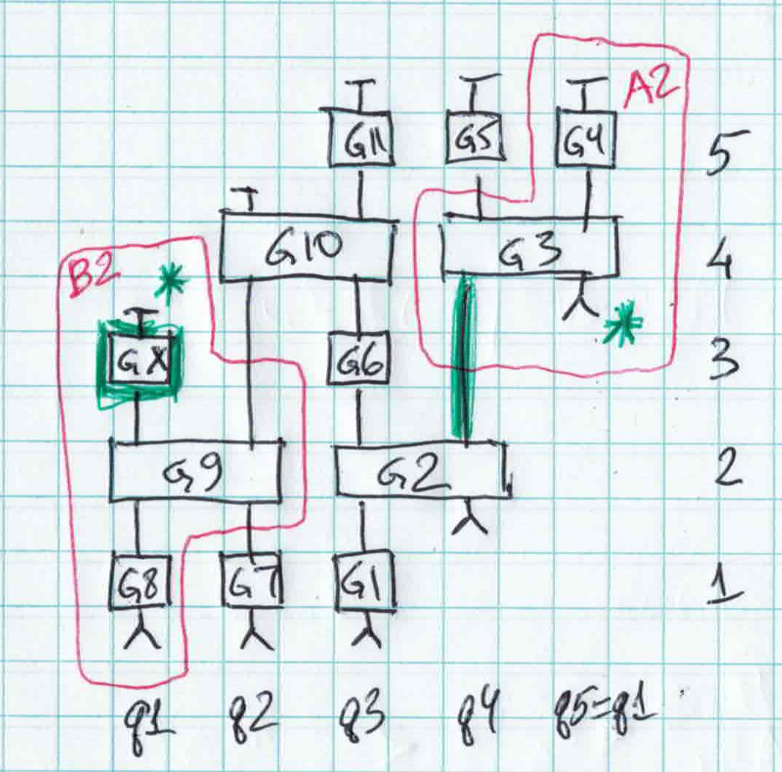 A2
G11 G5 G4 5
G10 G3 4
B2
GX G6 3
G9 G2 2
G8 G7 G1 1
q1 q2 q3 q4 q5=q1